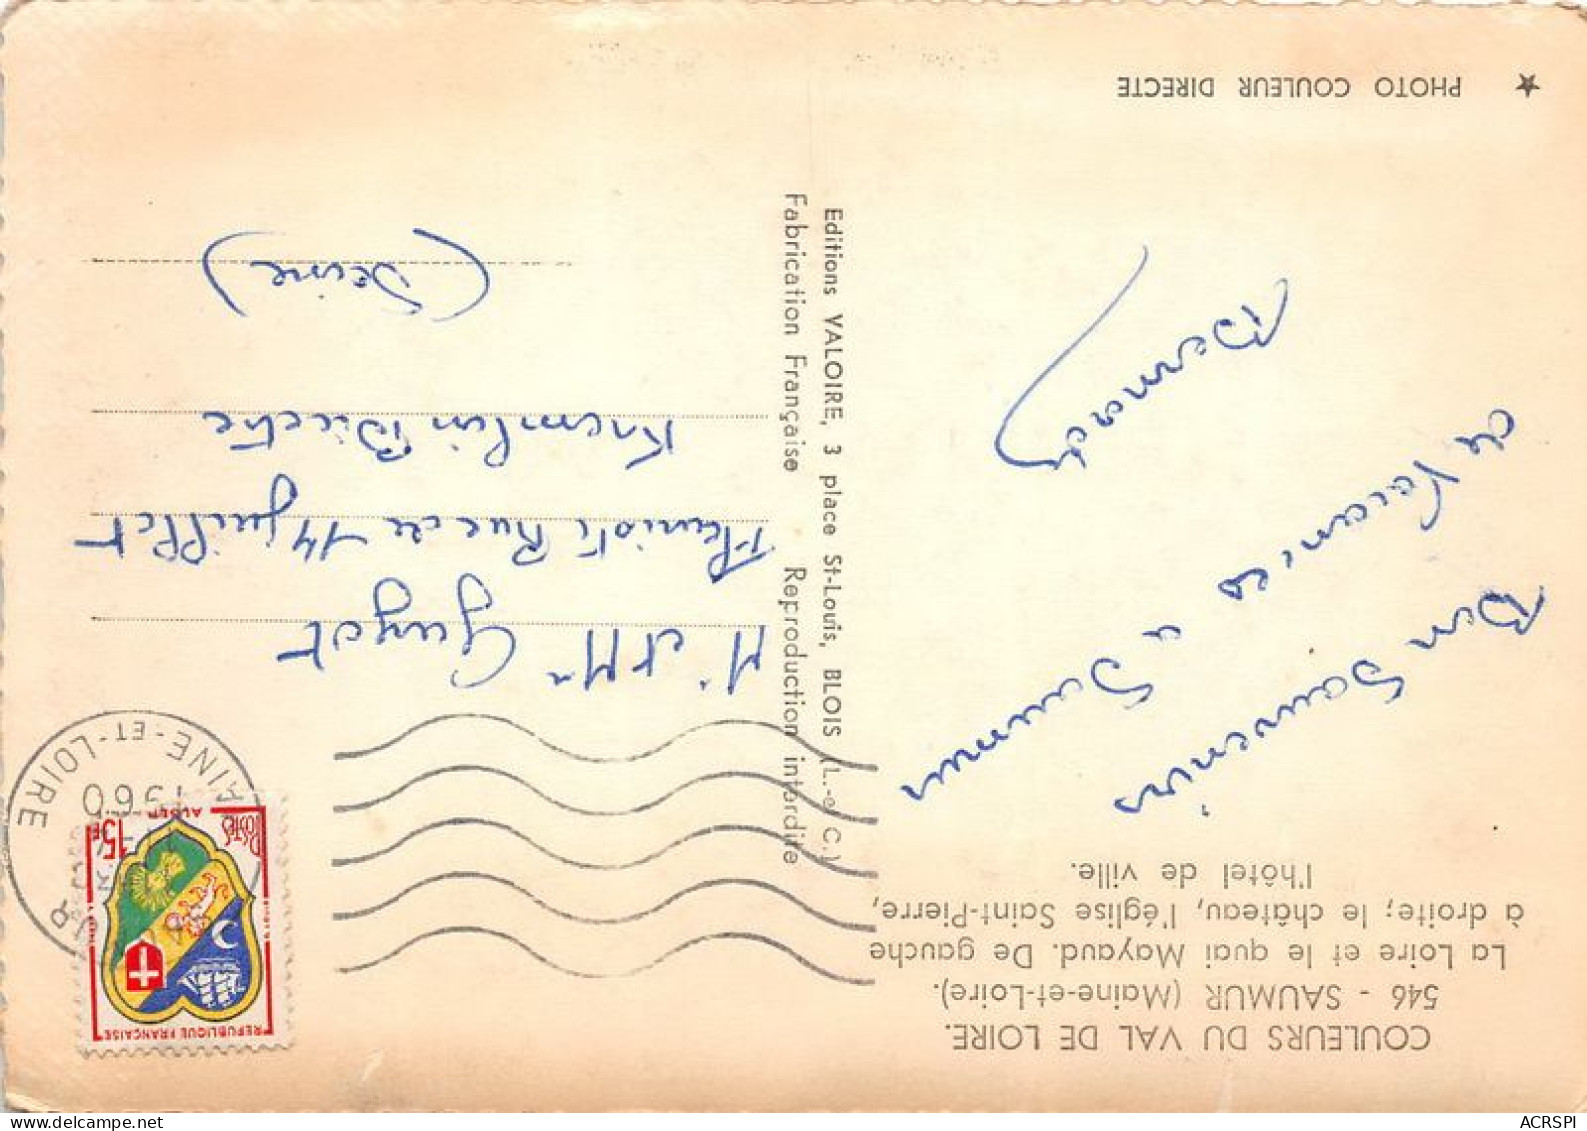 COULEURS DU VAL DE LOIRE.
546 - SAUMUR (Maine-et-Loire).
La Loire et le quai Mayaud. De gauche
à droite; le château, l'église Saint-Pierre,
l'hôtel de ville.
Bon Souvenirs
de Vacances
a Saumur
Bernard
★ PHOTO COULEUR DIRECTE
Editions VALOIRE, 3 place St-Louis, BLOIS (L.-e C.)
Fabrication Française Reproduction interdite
REPUBLIQUE FRANÇAISE
POSTES
15F
ALGER
MAINE-ET-LOIRE
1960
Mr et Mm Guyot
Rue du 14 juillet
Kremlin Bicetre
(Seine)
ACRSPI